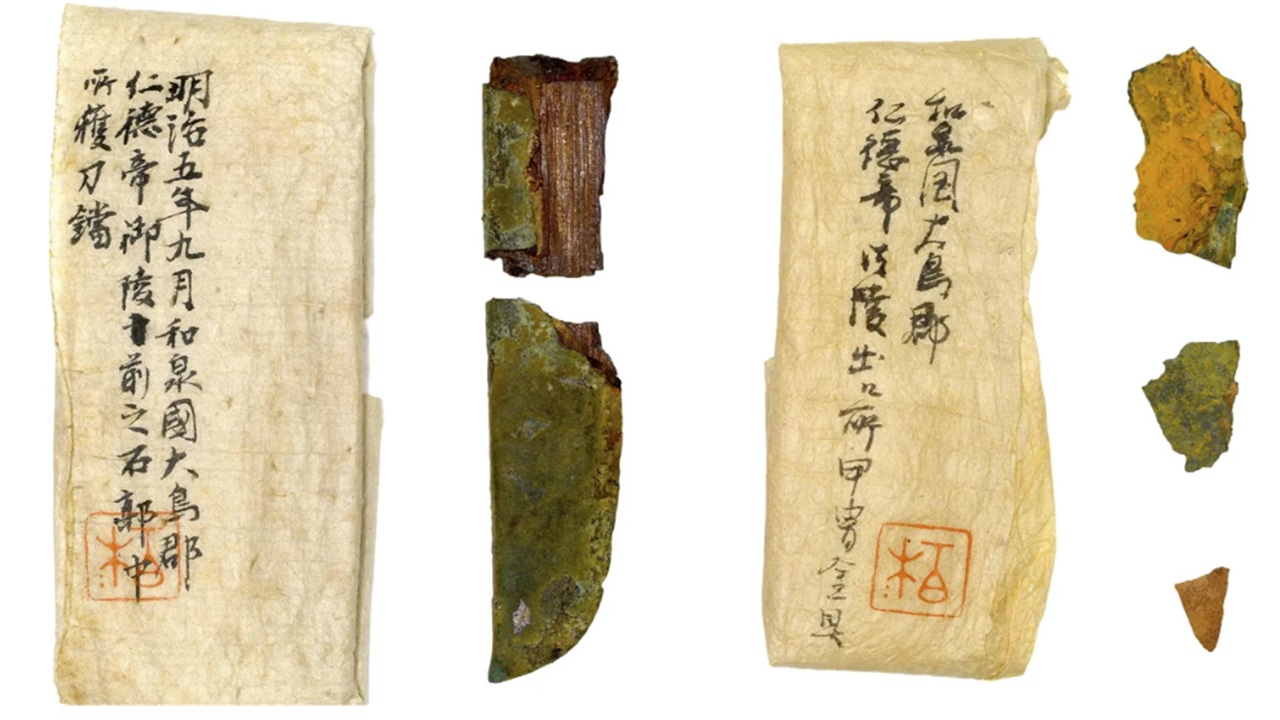 明治五年九月和泉國大鳥郡
仁德帝御陵前之石郭中
所獲刀鐺
柏
和泉国大鳥郡
仁德帝御陵出所甲冑金具
柏